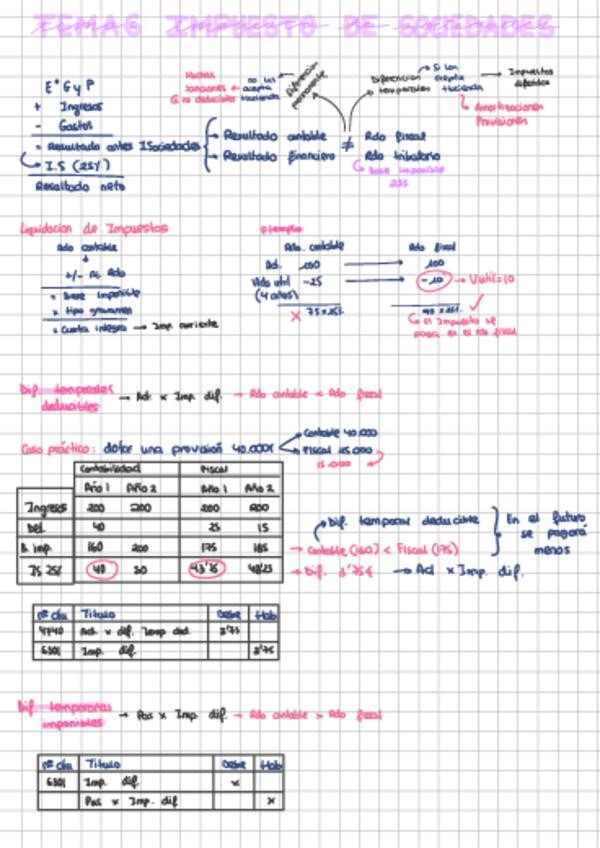 TEMA 6 IMPUESTO DE SOCIEDADES
Eª G y P
+ Ingresos
- Gastos
= Resultado antes ISociedades
I.S (25%)
Resultado neto
Resultado contable ≠ Rdo fiscal
Resultado financiero Rdo tributario
Base imponible
25%
Multas
sanciones
G no deducibles
no las
acepta
Hacienda
Diferencias
permanente
Diferencias
temporales
Si las
acepta
Hacienda
Impuestos
diferidos
Amortizaciones
Provisiones
Liquidación de Impuestos
Rdo contable
+/- Rdo
= Base imponible
x tipo gravamen
= Cuota íntegra → Imp. corriente
Ejemplo
Rdo. contable Rdo fiscal
100 → 100
Vida útil -25 → -10 → Vútil=10
(4 años)
X 75x25% 90x25% ✓
el Impuesto se
paga en el rdo fiscal
Dif. temporales
deducibles → Act. x Imp. dif. → Rdo contable < Rdo fiscal
Caso práctico: dotar una provisión 40.000€
Contable 40.000
Fiscal 25.000
15.000
Contabilidad Fiscal
Año 1 Año 2 Año 1 Año 2
Ingresos 200 200 200 200
40 25 15
B. imp. 160 200 175 185
IS 25% 40 50 43'75
Dif. temporal deducible
→ Contable (160) < Fiscal (175)
→ Dif. 3'75€ → Act x Imp. dif.
En el futuro
se pagará
menos
nº cta Título Debe Hab
4740 Act. x dif. temp ded. 3'75
6301 Imp. dif. 3'75
Dif. temporarias
imponibles → Pas x Imp. dif → Rdo contable > Rdo fiscal
nº cta Título Debe Hab
6301 Imp. dif. x
Pas x Imp. dif x